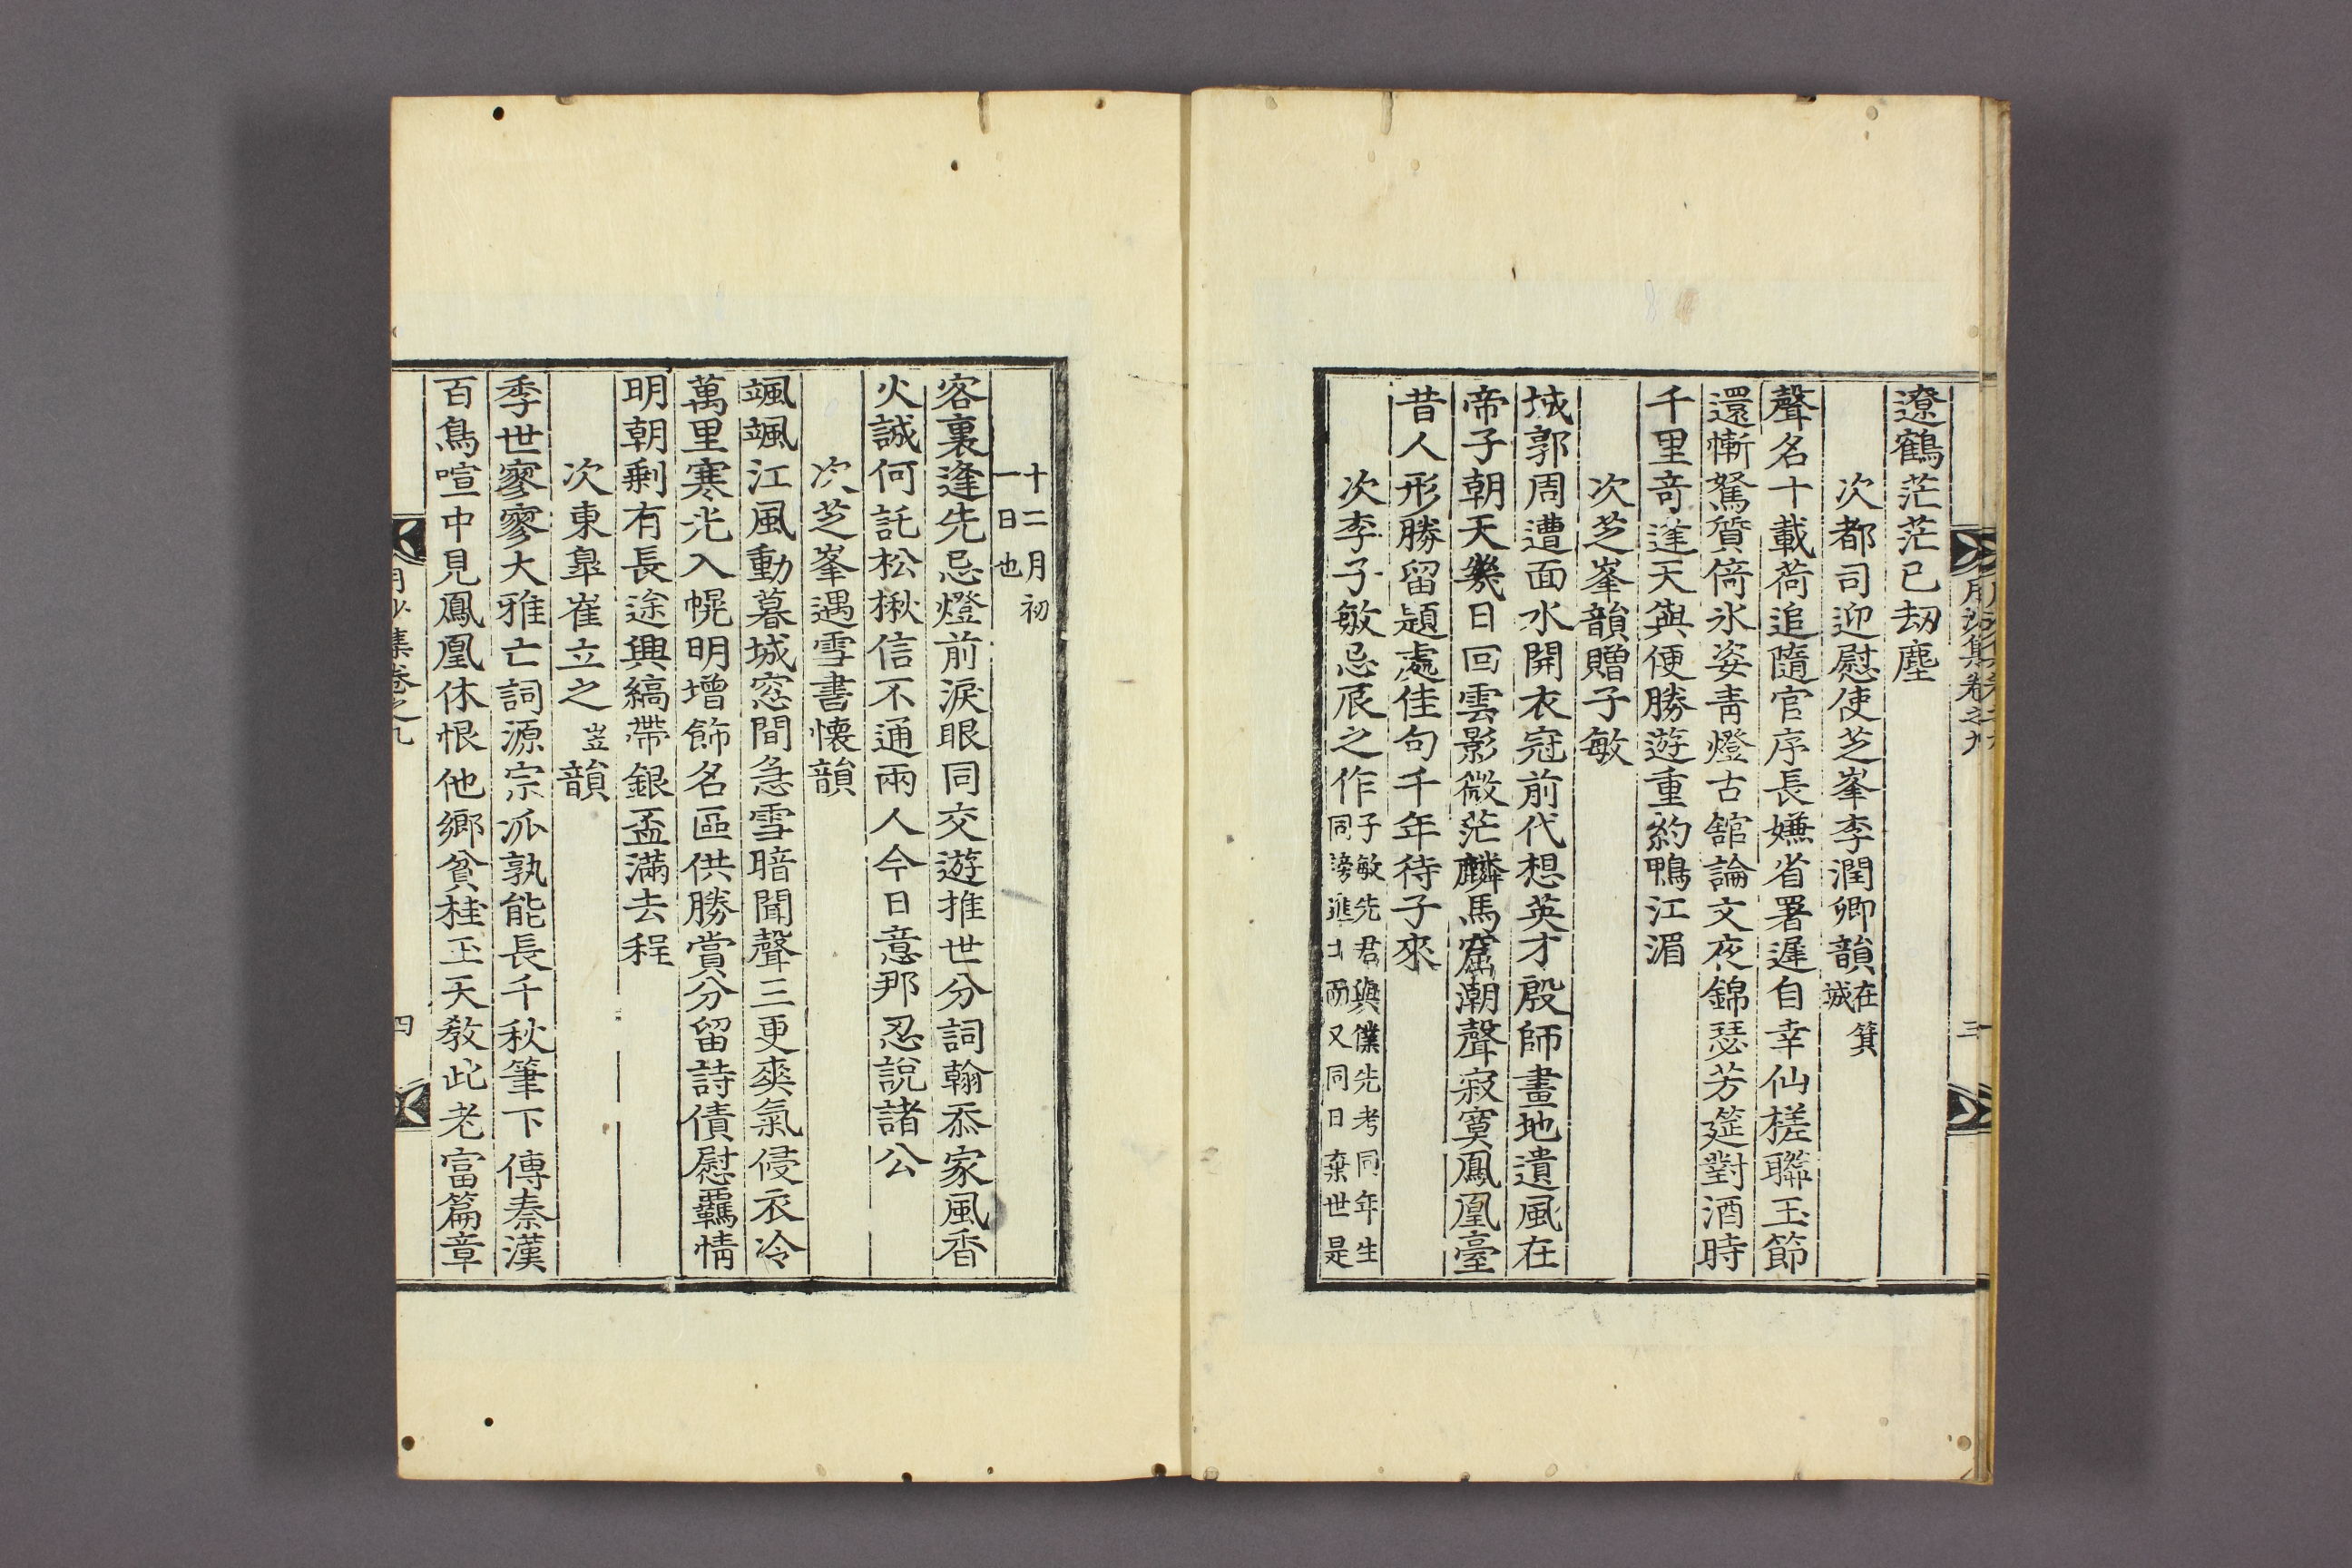 月沙集卷之九
三
遼鶴茫茫已劫塵
次都司迎慰使芝峯李潤卿韻在箕城
聲名十載荷追隨官序長嫌省署遲自幸仙槎聯玉節
還慚駑質倚氷姿靑燈古舘論文夜錦瑟芳筵對酒時
千里竒逢天與便勝遊重約鴨江湄
次芝峯韻贈子敏
城郭周遭面水開衣冠前代想英才殷師畫地遺風在
帝子朝天幾日回雲影微茫麟馬窟潮聲寂寞鳳凰臺
昔人形勝留題處佳句千年待子來
次李子敏忌辰之作子敏先君與僕先考同年生
同榜進士而又同日棄世是
十二月初
一日也
客裏逢先忌燈前淚眼同交遊推世分詞翰忝家風香
火誠何託松楸信不通兩人今日意那忍說諸公
次芝峯遇雪書懷韻
颯颯江風動暮城窓間急雪暗聞聲三更爽氣侵衣冷
萬里寒光入幌明增飾名區供勝賞分留詩債慰羈情
明朝剩有長途興縞帶銀盃滿去程
次東皐崔立之岦韻
季世寥寥大雅亡詞源宗派孰能長千秋筆下傳秦漢
百鳥喧中見鳳凰休恨他鄉貧桂玉天敎此老富篇章
月沙集卷之九
四